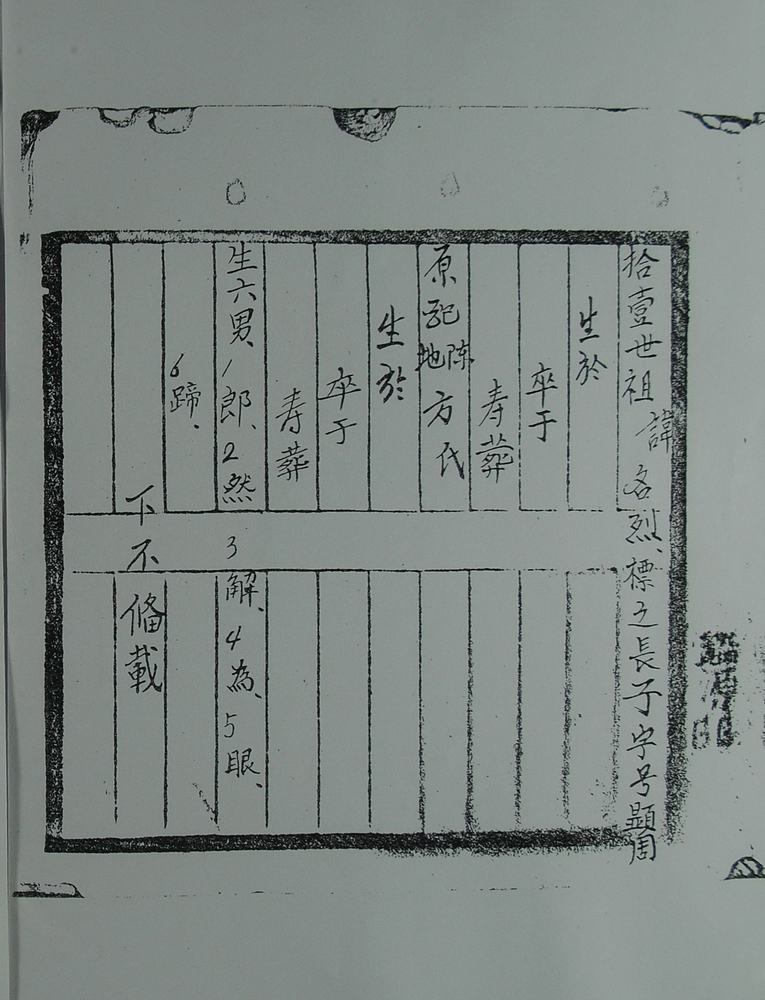 拾壹世祖 諱 名烈、標之長子字号顯周
生於
卒于
寿葬
原配 陈地方氏
生於
卒于
寿葬
生六男、1郎、2然 3解、4為、5眼、
6蹄、
下不俻載